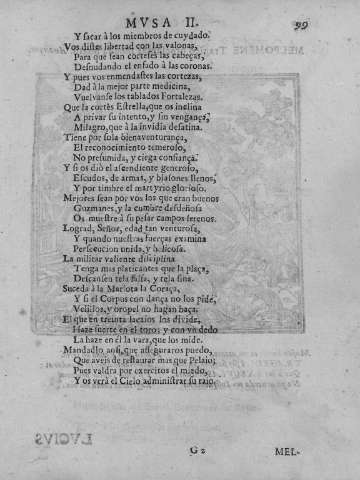 MVSA II. 99
Y sacar à los miembros de cuydado.
Vos distes libertad con las valonas,
Para que sean corteses las cabeças,
Desnudando el enfado à las coronas.
Y pues vos enmendastes las cortezas,
Dad à la mejor parte medicina,
Vuelvanse los tablados Fortalezas.
Que la cortès Estrella, que os inclina
A privar su intento, y sin vengança,
Milagro, que à la invidia desatina.
Tiene por sola bienaventurança,
El reconocimiento temeroso,
No presumida, y ciega confiança.
Y si os diò el ascendiente generoso,
Escudos, de armas, y blasones llenos,
Y por timbre el martyrio glorioso.
Mejores sean por vos los que eran buenos
Guzmanes, y la cumbre desdeñosa
Os muestre à su pesar campos serenos.
Lograd, Señor, edad tan venturosa,
Y quando nuestras fuerças examina
Persecucion unida, y belicosa.
La militar valiente disciplina
Tenga mas platicantes que la plaça,
Descansen tela falsa, y tela fina.
Suceda à la Marlota la Coraça,
Y si el Corpus con dança no los pide,
Velillos, y oropel no hagan baça.
El que en treinta lacaios los divide,
Haze suerte en el toro; y con un dedo
La haze en èl la vara, que los mide.
Mandadlo ansi, que asseguraros puedo,
Que aveis de restaurar mas que Pelaio;
Pues valdra por exercitos el miedo,
Y os verà el Cielo administrar su raio.
G 2 MEL-